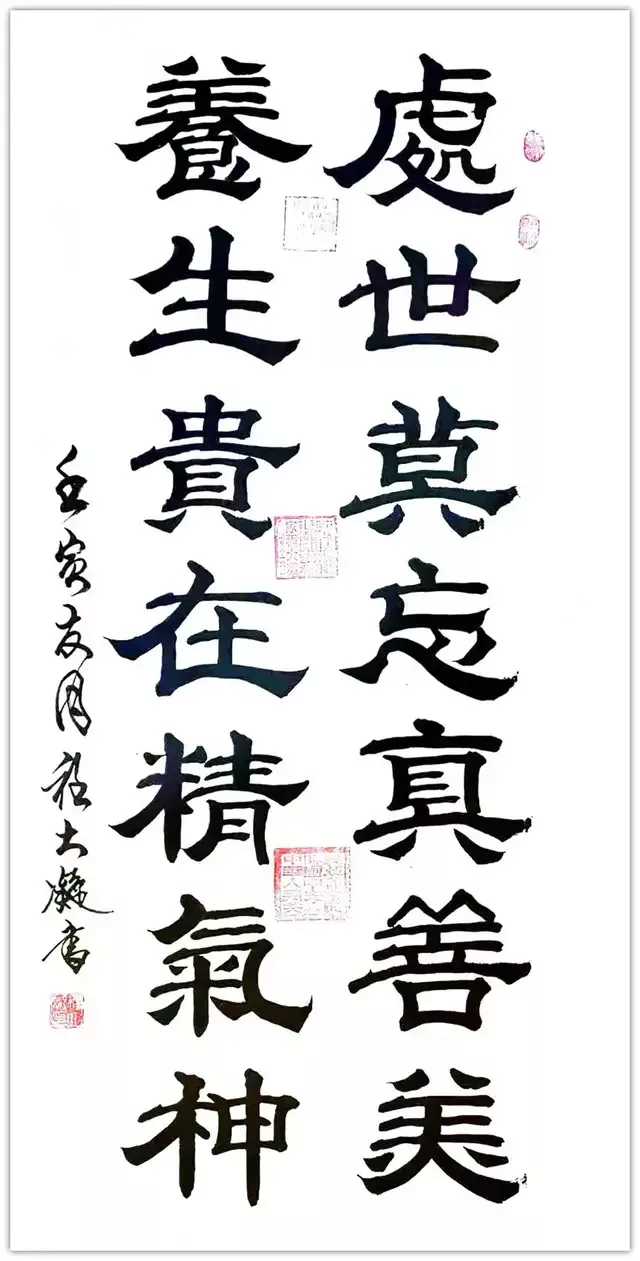 處世莫忘真善美
養生貴在精氣神
壬寅友月程大凝書